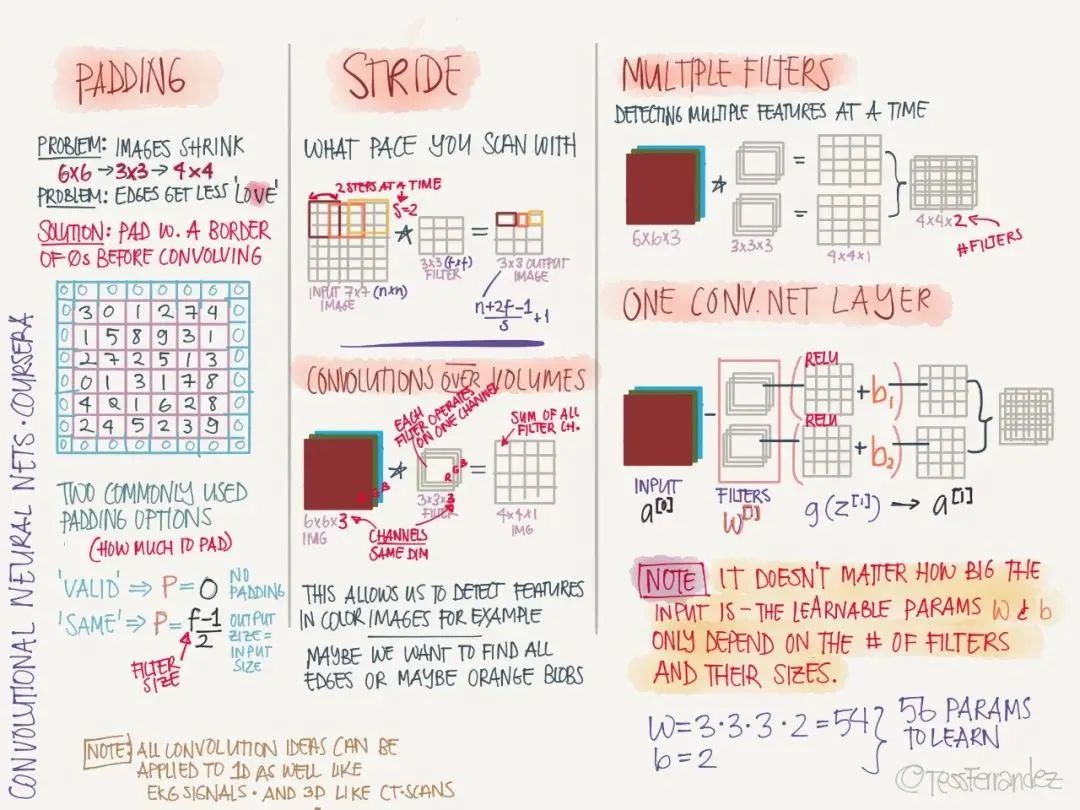 CONVOLUTIONAL NEURAL NETS · COURSERA
PADDING
PROBLEM: IMAGES SHRINK
6x6 → 3x3 → 4x4
PROBLEM: EDGES GET LESS 'LOVE'
SOLUTION: PAD W. A BORDER
OF 0s BEFORE CONVOLVING
0 0 0 0 0 0 0 0
0 3 0 1 2 7 4 0
0 1 5 8 9 3 1 0
0 2 7 2 5 1 3 0
0 0 1 3 1 7 8 0
0 4 2 1 6 2 8 0
0 2 4 5 2 3 9 0
0 0 0 0 0 0 0 0
TWO COMMONLY USED
PADDING OPTIONS
(HOW MUCH TO PAD)
'VALID' ⇒ P = 0 NO
PADDING
'SAME' ⇒ P = f-1/2 OUTPUT
SIZE =
INPUT
SIZE
FILTER
SIZE
NOTE: ALL CONVOLUTION IDEAS CAN BE
APPLIED TO 1D AS WELL LIKE
EKG SIGNALS · AND 3D LIKE CT-SCANS
STRIDE
WHAT PACE YOU SCAN WITH
2 STEPS AT A TIME
S=2
* =
3x3 (f×f)
FILTER
3x3 OUTPUT
IMAGE
INPUT 7x7 (n×n)
IMAGE
n+2f-1/s +1
CONVOLUTIONS OVER VOLUMES
EACH
FILTER OPERATES
ON ONE CHANNEL
SUM OF ALL
FILTER CH.
* =
R G B
R G B
6x6x3
IMG
3x3x3
FILTER
4x4x1
IMG
CHANNELS
SAME DIM
THIS ALLOWS US TO DETECT FEATURES
IN COLOR IMAGES FOR EXAMPLE
MAYBE WE WANT TO FIND ALL
EDGES OR MAYBE ORANGE BLOBS
MULTIPLE FILTERS
DETECTING MULTIPLE FEATURES AT A TIME
* =
=
6x6x3
3x3x3
4x4x1
4x4x2
#FILTERS
ONE CONV. NET LAYER
(RELU + b1)
(RELU + b2)
INPUT
a[0]
FILTERS
W[1]
g(z[1]) → a[1]
NOTE IT DOESN'T MATTER HOW BIG THE
INPUT IS - THE LEARNABLE PARAMS W & b
ONLY DEPEND ON THE # OF FILTERS
AND THEIR SIZES.
W = 3·3·3·2 = 54 } 56 PARAMS
b = 2 TO LEARN
@TessFerrandez